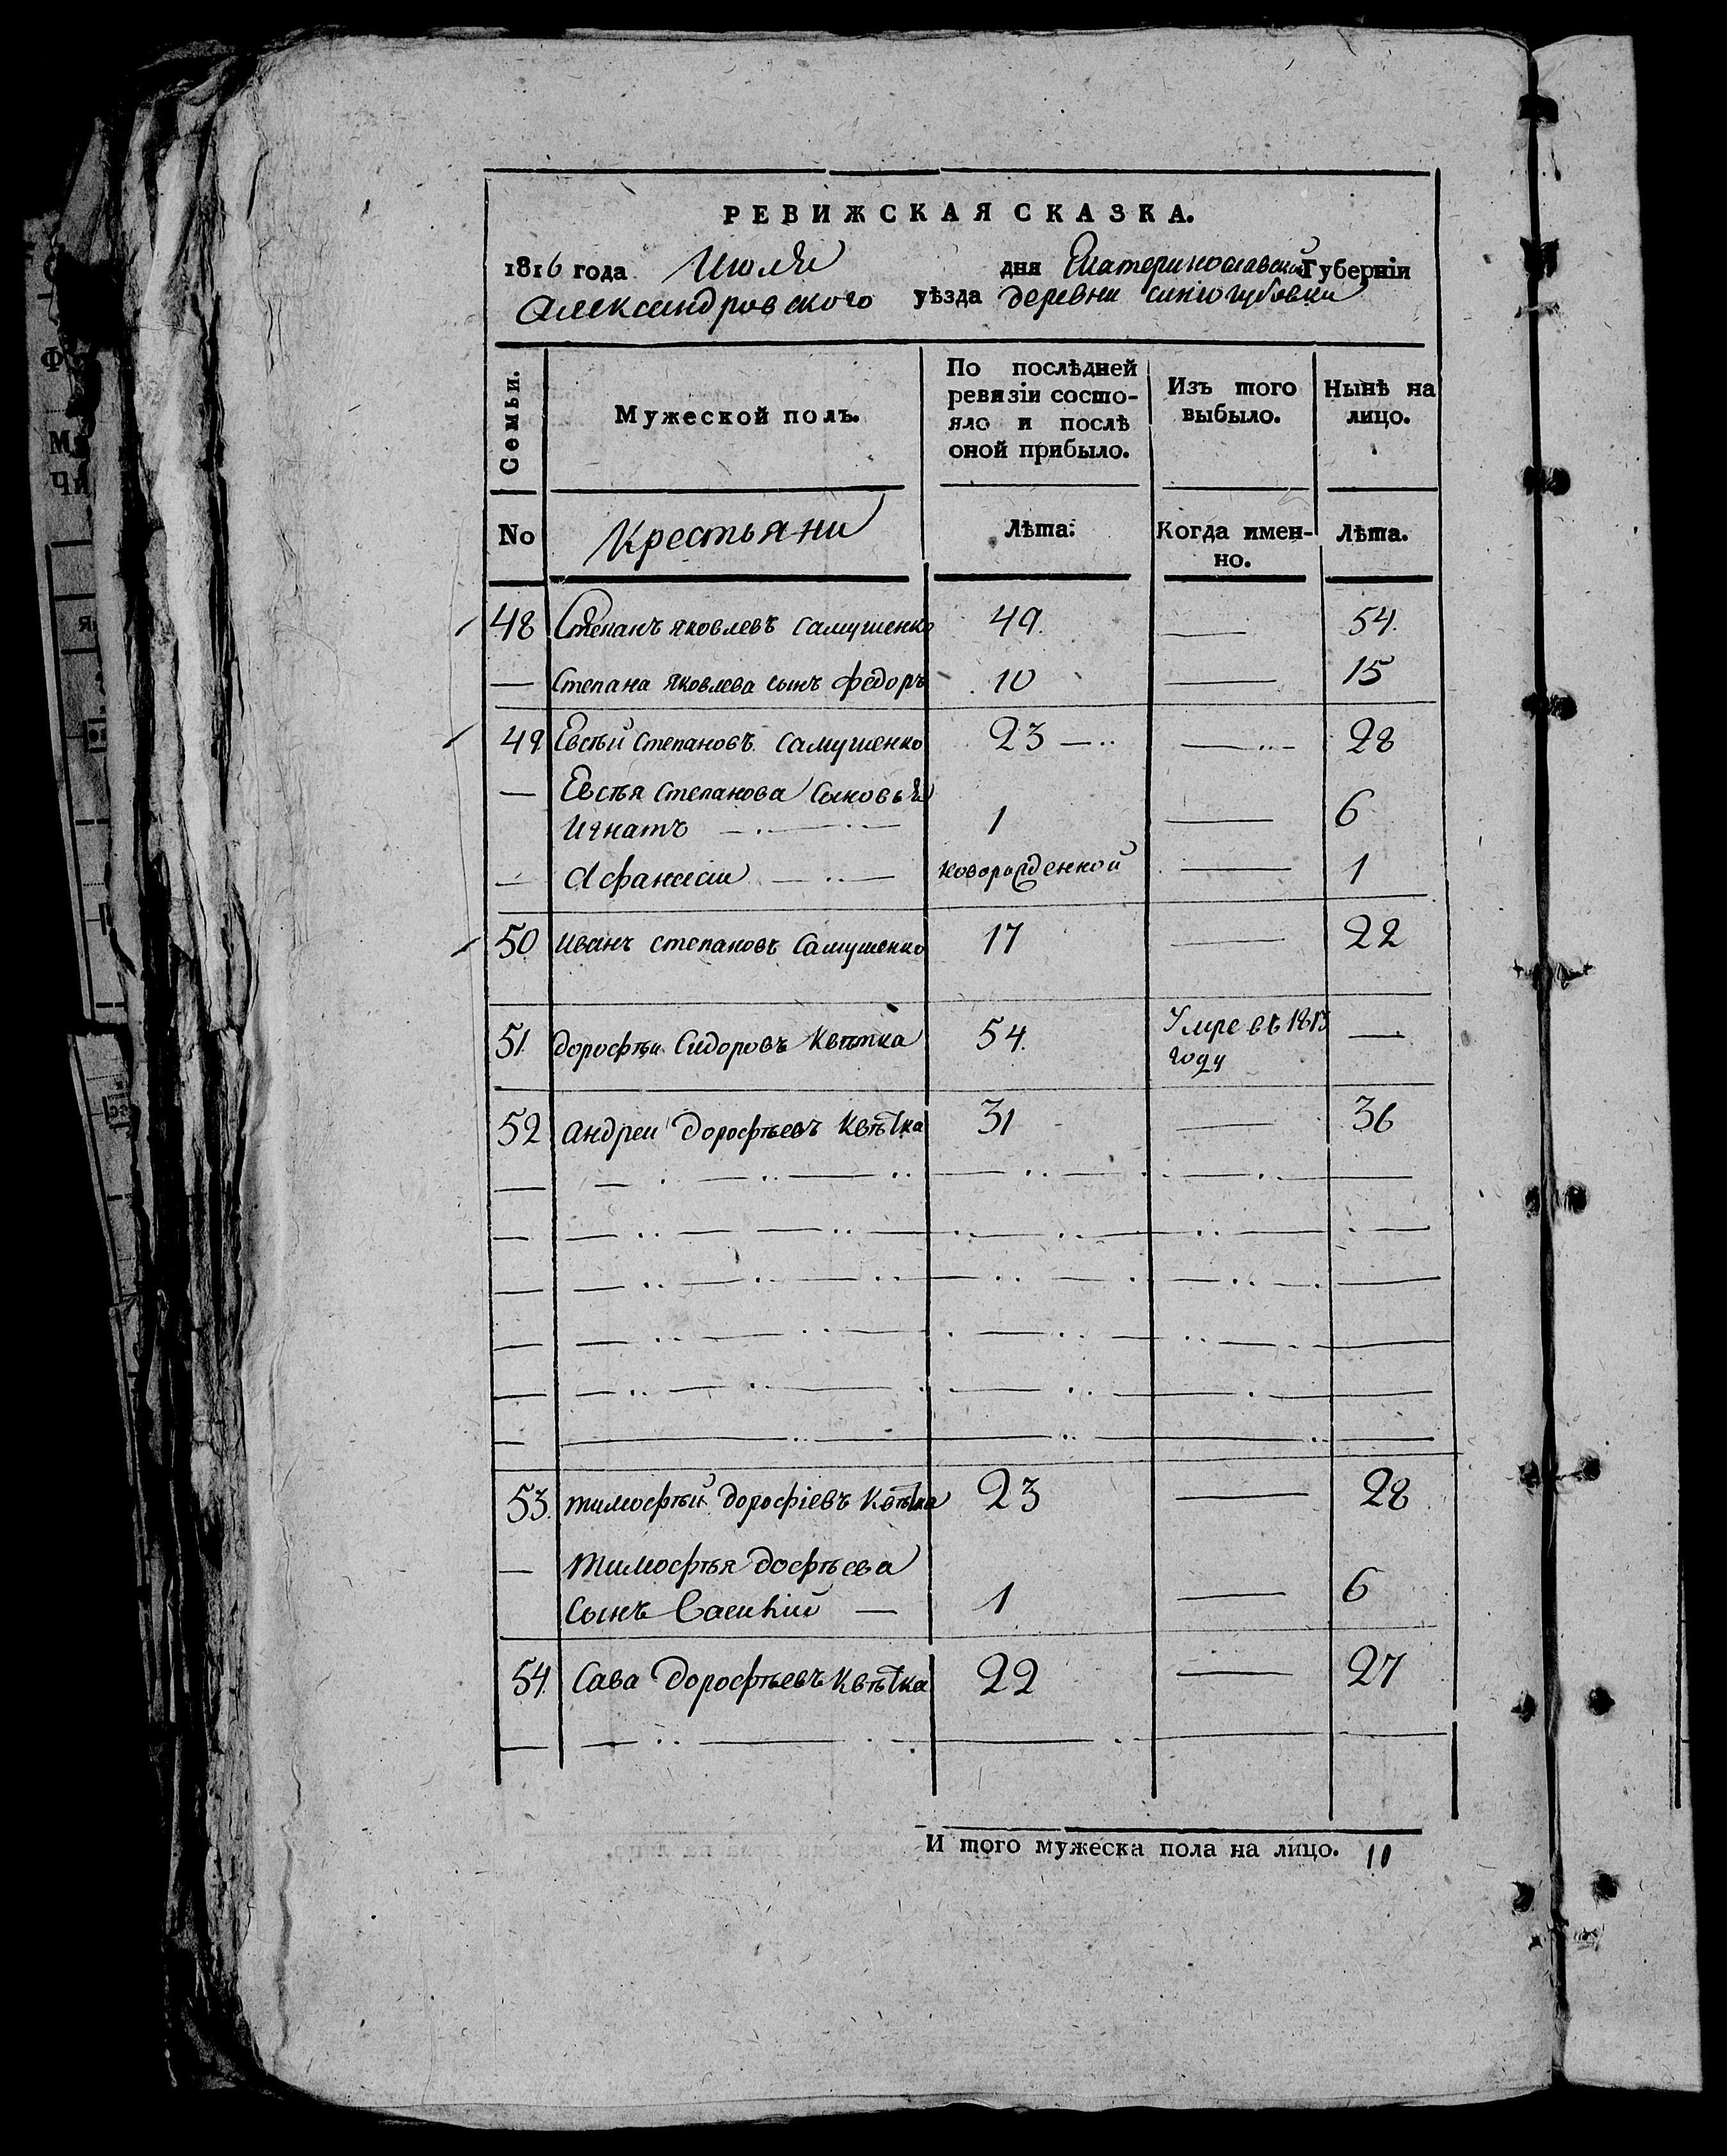 РЕВИЖСКАЯ СКАЗКА.
1816 года Июля дня Екатеринославской Губерніи
Александровского уѣзда деревни синегубовки
Семьи.
Мужеской полъ.
По послѣдней
ревизіи состо-
яло и послѣ
оной прибыло.
Изъ того
выбыло.
Нынѣ на
лицо.
No
Крестьяни
Лѣта.
Когда имен-
но.
Лѣта.
48 Степанъ яковлевъ самушенко 49. — 54.
— Степана яковлева сынъ федоръ 10 — 15
49 Евсѣй степановъ самушенко 23 — 28
— Евсѣя степанова сыновья
Игнатъ 1 — 6
— Афанасии новорожденной — 1
50 иванъ степановъ самушенко 17 — 22
51. дорофѣи Сидоровъ Квѣтка 54. Умре въ 1813 году —
52 андреи дорофѣевъ Квѣтка 31 — 36
53. тимофѣй дорофіевъ Квѣтка 23 — 28
— тимофѣя дофѣева
сынъ Василий — 1 — 6
54. Сава дорофѣевъ Квѣтка 22 — 27
И того мужеска пола на лицо. 10